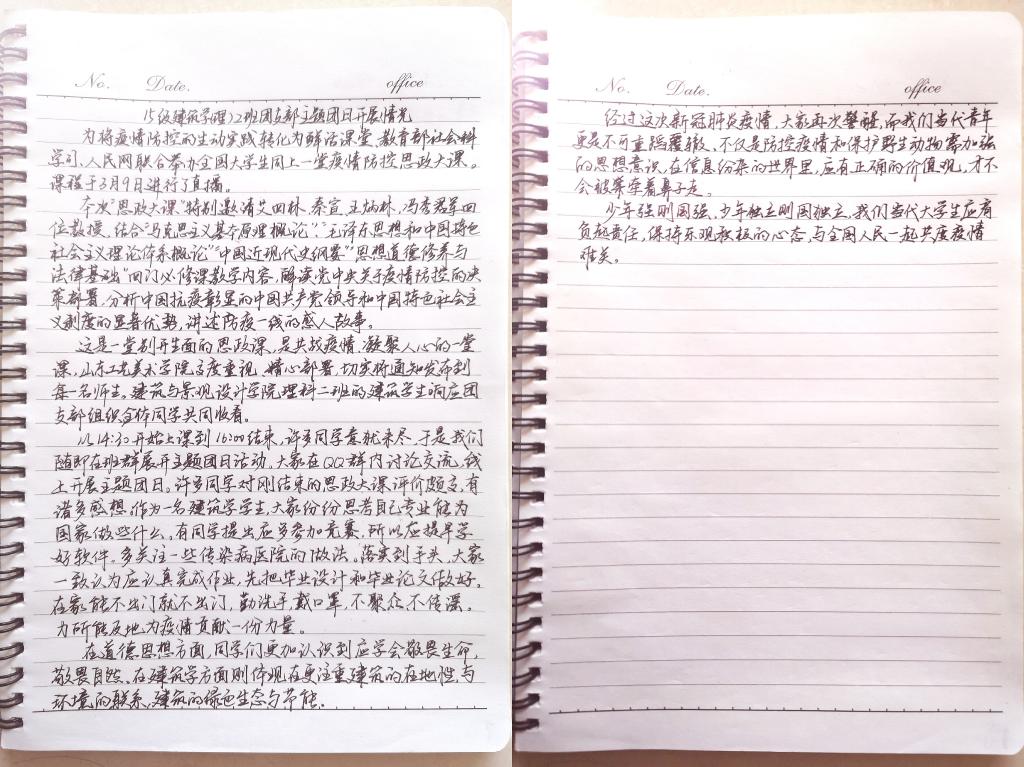 No. Date. office
15级建筑学理2班团支部主题团日开展情况
为将疫情防控的生动实践转化为鲜活课堂,教育部社会科
学司、人民网联合举办全国大学生同上一堂疫情防控思政大课。
课程于3月9日进行了直播。
本次"思政大课"特别邀请艾四林、秦宣、王炳林、冯秀军四
位教授,结合"马克思主义基本原理概论""毛泽东思想和中国特色
社会主义理论体系概论""中国近现代史纲要""思想道德修养与
法律基础"四门必修课教学内容,解读党中央关于疫情防控的决
策部署,分析中国抗疫彰显的中国共产党领导和中国特色社会主
义制度的显著优势,讲述防疫一线的感人故事。
这是一堂别开生面的思政课,是共战疫情、凝聚人心的一堂
课,山东工艺美术学院高度重视、精心部署,切实将通知发布到
每一名师生。建筑与景观设计学院理科二班的建筑学生响应团
支部组织全体同学共同收看。
从14:30开始上课到16:00结束,许多同学意犹未尽,于是我们
随即在班群展开主题团日活动。大家在QQ群内讨论交流,线
上开展主题团日。许多同学对刚结束的思政大课评价颇高,有
诸多感想。作为一名建筑学学生,大家纷纷思考自己专业能为
国家做些什么。有同学提出应多参加竞赛,所以应提早学
好软件。多关注一些传染病医院的做法。落实到手头,大家
一致认为应认真完成作业,先把毕业设计和毕业论文做好。
在家能不出门就不出门,勤洗手,戴口罩,不聚众,不传谣。
力所能及地为疫情贡献一份力量。
在道德思想方面,同学们更加认识到应学会敬畏生命,
敬畏自然。在建筑学方面则体现在更注重建筑的在地性,与
环境的联系,建筑的绿色生态与节能。
No. Date. office
经过这次新冠肺炎疫情,大家再次警醒,而我们当代青年
更是不可重蹈覆辙。不仅是防控疫情和保护野生动物需加强
的思想意识,在信息纷杂的世界里,应有正确的价值观,才不
会被牵着鼻子走。
少年强则国强,少年独立则国独立,我们当代大学生应肩
负起责任,保持乐观积极的心态,与全国人民一起共度疫情
难关。